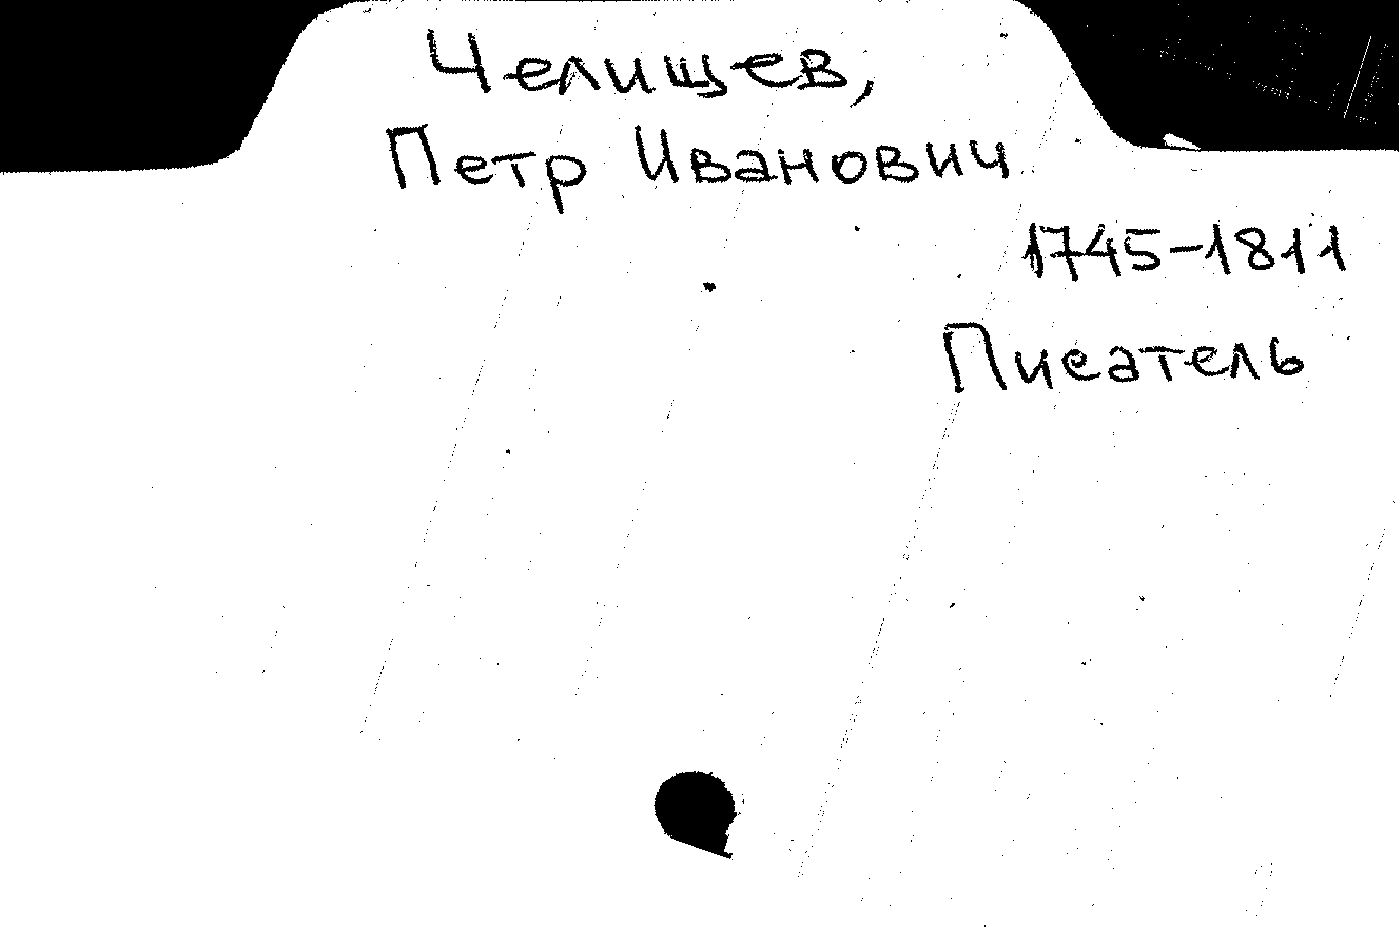 Челищев,
Петр Иванович
1745-1811
Писатель